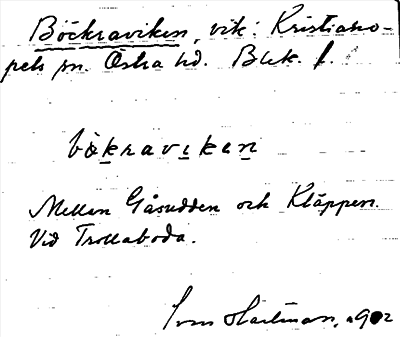 Böckraviken, vik: Kristiano-
pels sn. Östra hd. Blek. l.
bökraviken
Mellan Gåsudden och Kläppen.
Vid Trollaboda.
Sven Hartman, 1902